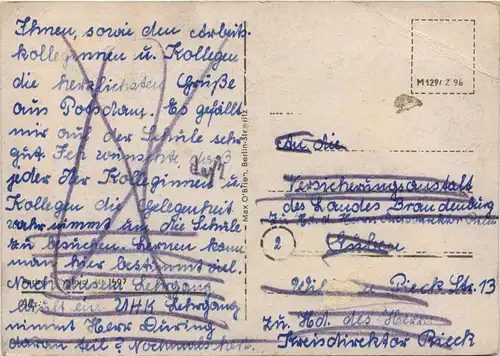 Ihnen, sowie den Arbeits-
kolleginnen u. Kollegen
die herzlichsten Grüße
aus Potsdam. Es gefällt
mir auf der Schule sehr
gut. Ich wünschte, daß
jeder der Kolleginnen u.
Kollegen die Gelegenheit
wahrnimmt an die Schule
zu besuchen. Lernen kann
man hier bestimmt viel.
Nach diesem Lehrgang
ein UHK Lehrgang
nimmt Herr Düring
daran teil? Nochmals
Max O'Brien, Berlin-Steglitz
M 129/ Z 96
An die
Versicherungsanstalt
des Landes Brandenburg
zu Hd.
2
Guben
Pieck Str. 13
zu. Hd. des Herrn
Kreisdirektor Rieck